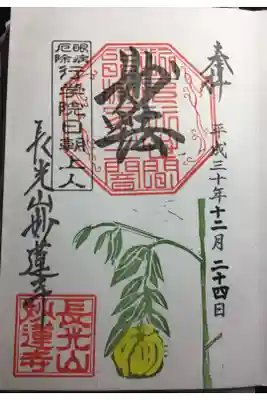 奉拝
平成三十年十二月二十四日
眼病
厄除
行学院日朝上人
長光山妙蓮寺
長光山
妙蓮寺